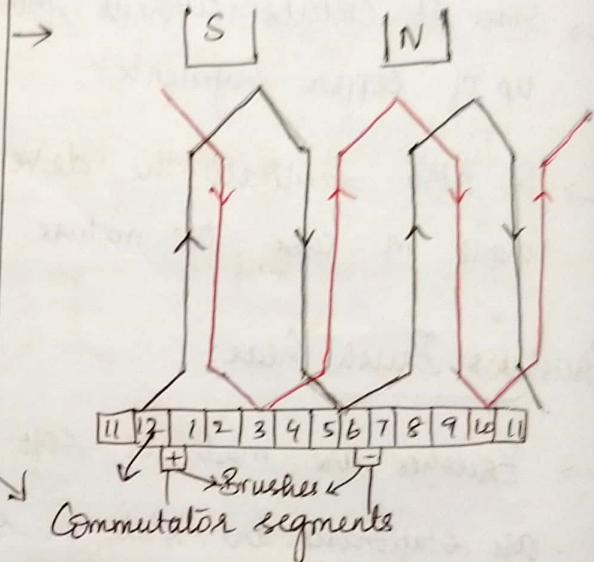 S N
11 12 1 2 3 4 5 6 7 8 9 10 11
+ Brushes -
Commutator segments